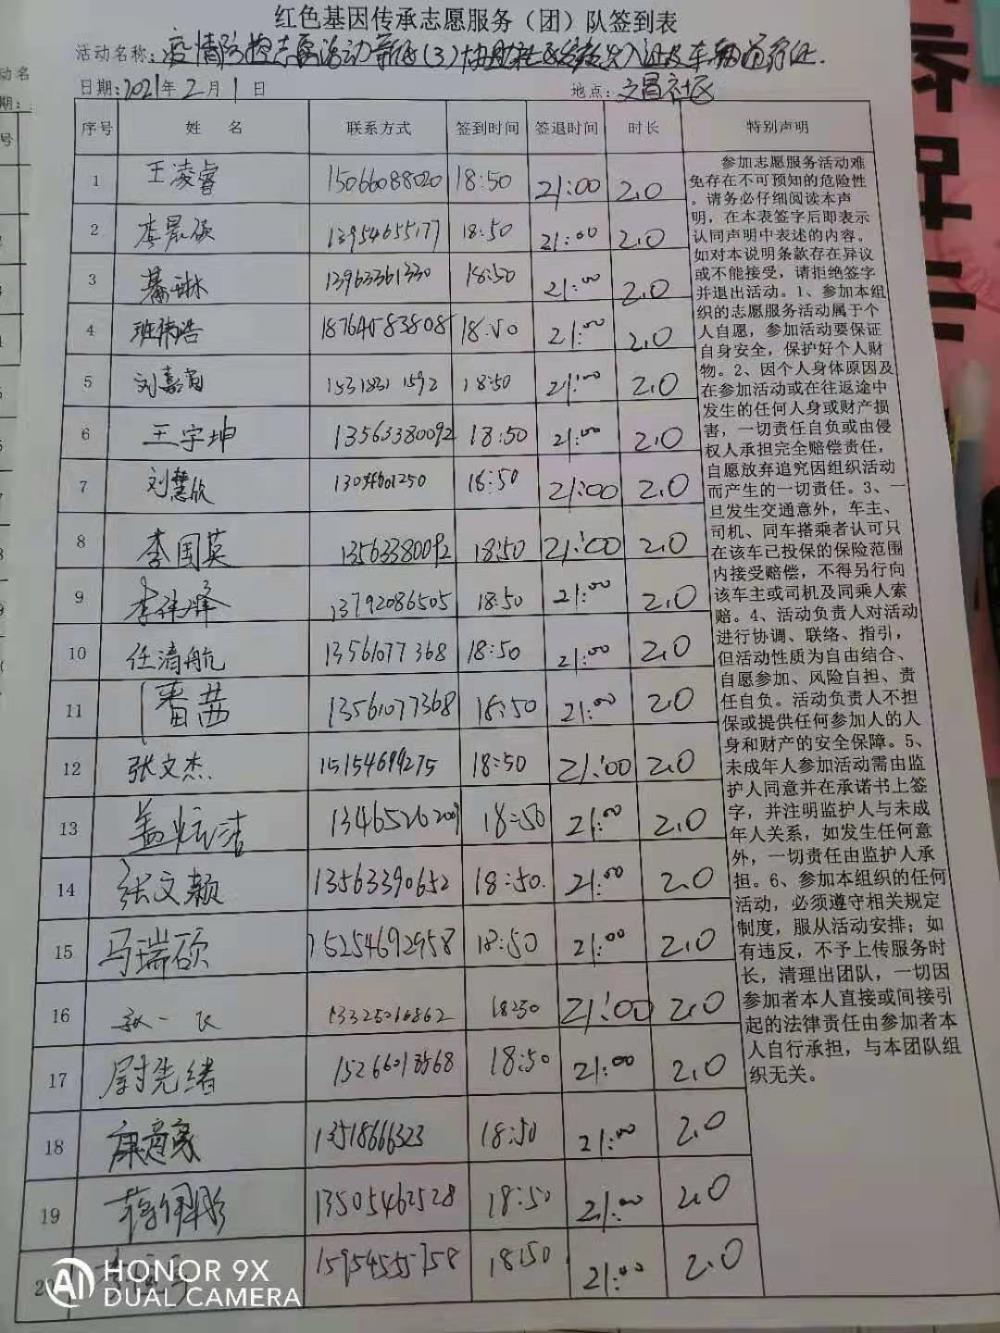 红色基因传承志愿服务（团）队签到表
活动名称：疫情防控志愿活动
日期：2021年2月1日 地点：文昌社区
序号 姓 名 联系方式 签到时间 签退时间 时长 特别声明
1 王凌睿 15066088020 18:50 21:00 2.0
2 李晨硕 13954655177 18:50 21:00 2.0
3 13963361330 18:50 21:00 2.0
4 班梓浩 18764583808 18:50 21:00 2.0
5 刘嘉 15318311592 18:50 21:00 2.0
6 王宇坤 13563380092 18:50 21:00 2.0
7 刘慧欣 18:50 21:00 2.0
8 李国英 13563380092 18:50 21:00 2.0
9 李 13792086505 18:50 21:00 2.0
10 任清航 13561077368 18:50 21:00 2.0
11 潘茜 13561077368 18:50 21:00 2.0
12 张文杰 15154694275 18:50 21:00 2.0
13 盖 洁 13465262009 18:50 21:00 2.0
14 张文颖 13563390652 18:50 21:00 2.0
15 马瑞硕 15254692958 18:50 21:00 2.0
16 18:50 21:00 2.0
17 尉先绪 15266013568 18:50 21:00 2.0
18 13518666323 18:50 21:00 2.0
19 13505462528 18:50 21:00 2.0
20 18:50 21:00 2.0
参加志愿服务活动难
免存在不可预知的危险性
。请务必仔细阅读本声
明，在本表签字后即表示
认同声明中表述的内容。
如对本说明条款存在异议
或不能接受，请拒绝签字
并退出活动。1、参加本组
织的志愿服务活动属于个
人自愿，参加活动要保证
自身安全，保护好个人财
物。2、因个人身体原因及
在参加活动或在往返途中
发生的任何人身或财产损
害，一切责任自负或由侵
权人承担完全赔偿责任，
自愿放弃追究因组织活动
而产生的一切责任。3、一
旦发生交通意外，车主、
司机、同车搭乘者认可只
在该车已投保的保险范围
内接受赔偿，不得另行向
该车主或司机及同乘人索
赔。4、活动负责人对活动
进行协调、联络、指引，
但活动性质为自由结合、
自愿参加、风险自担、责
任自负。活动负责人不担
保或提供任何参加人的人
身和财产的安全保障。5、
未成年人参加活动需由监
护人同意并在承诺书上签
字，并注明监护人与未成
年人关系，如发生任何意
外，一切责任由监护人承
担。6、参加本组织的任何
活动，必须遵守相关规定
制度，服从活动安排；如
有违反，不予上传服务时
长，清理出团队，一切因
参加者本人直接或间接引
起的法律责任由参加者本
人自行承担，与本团队组
织无关。
HONOR 9X
DUAL CAMERA